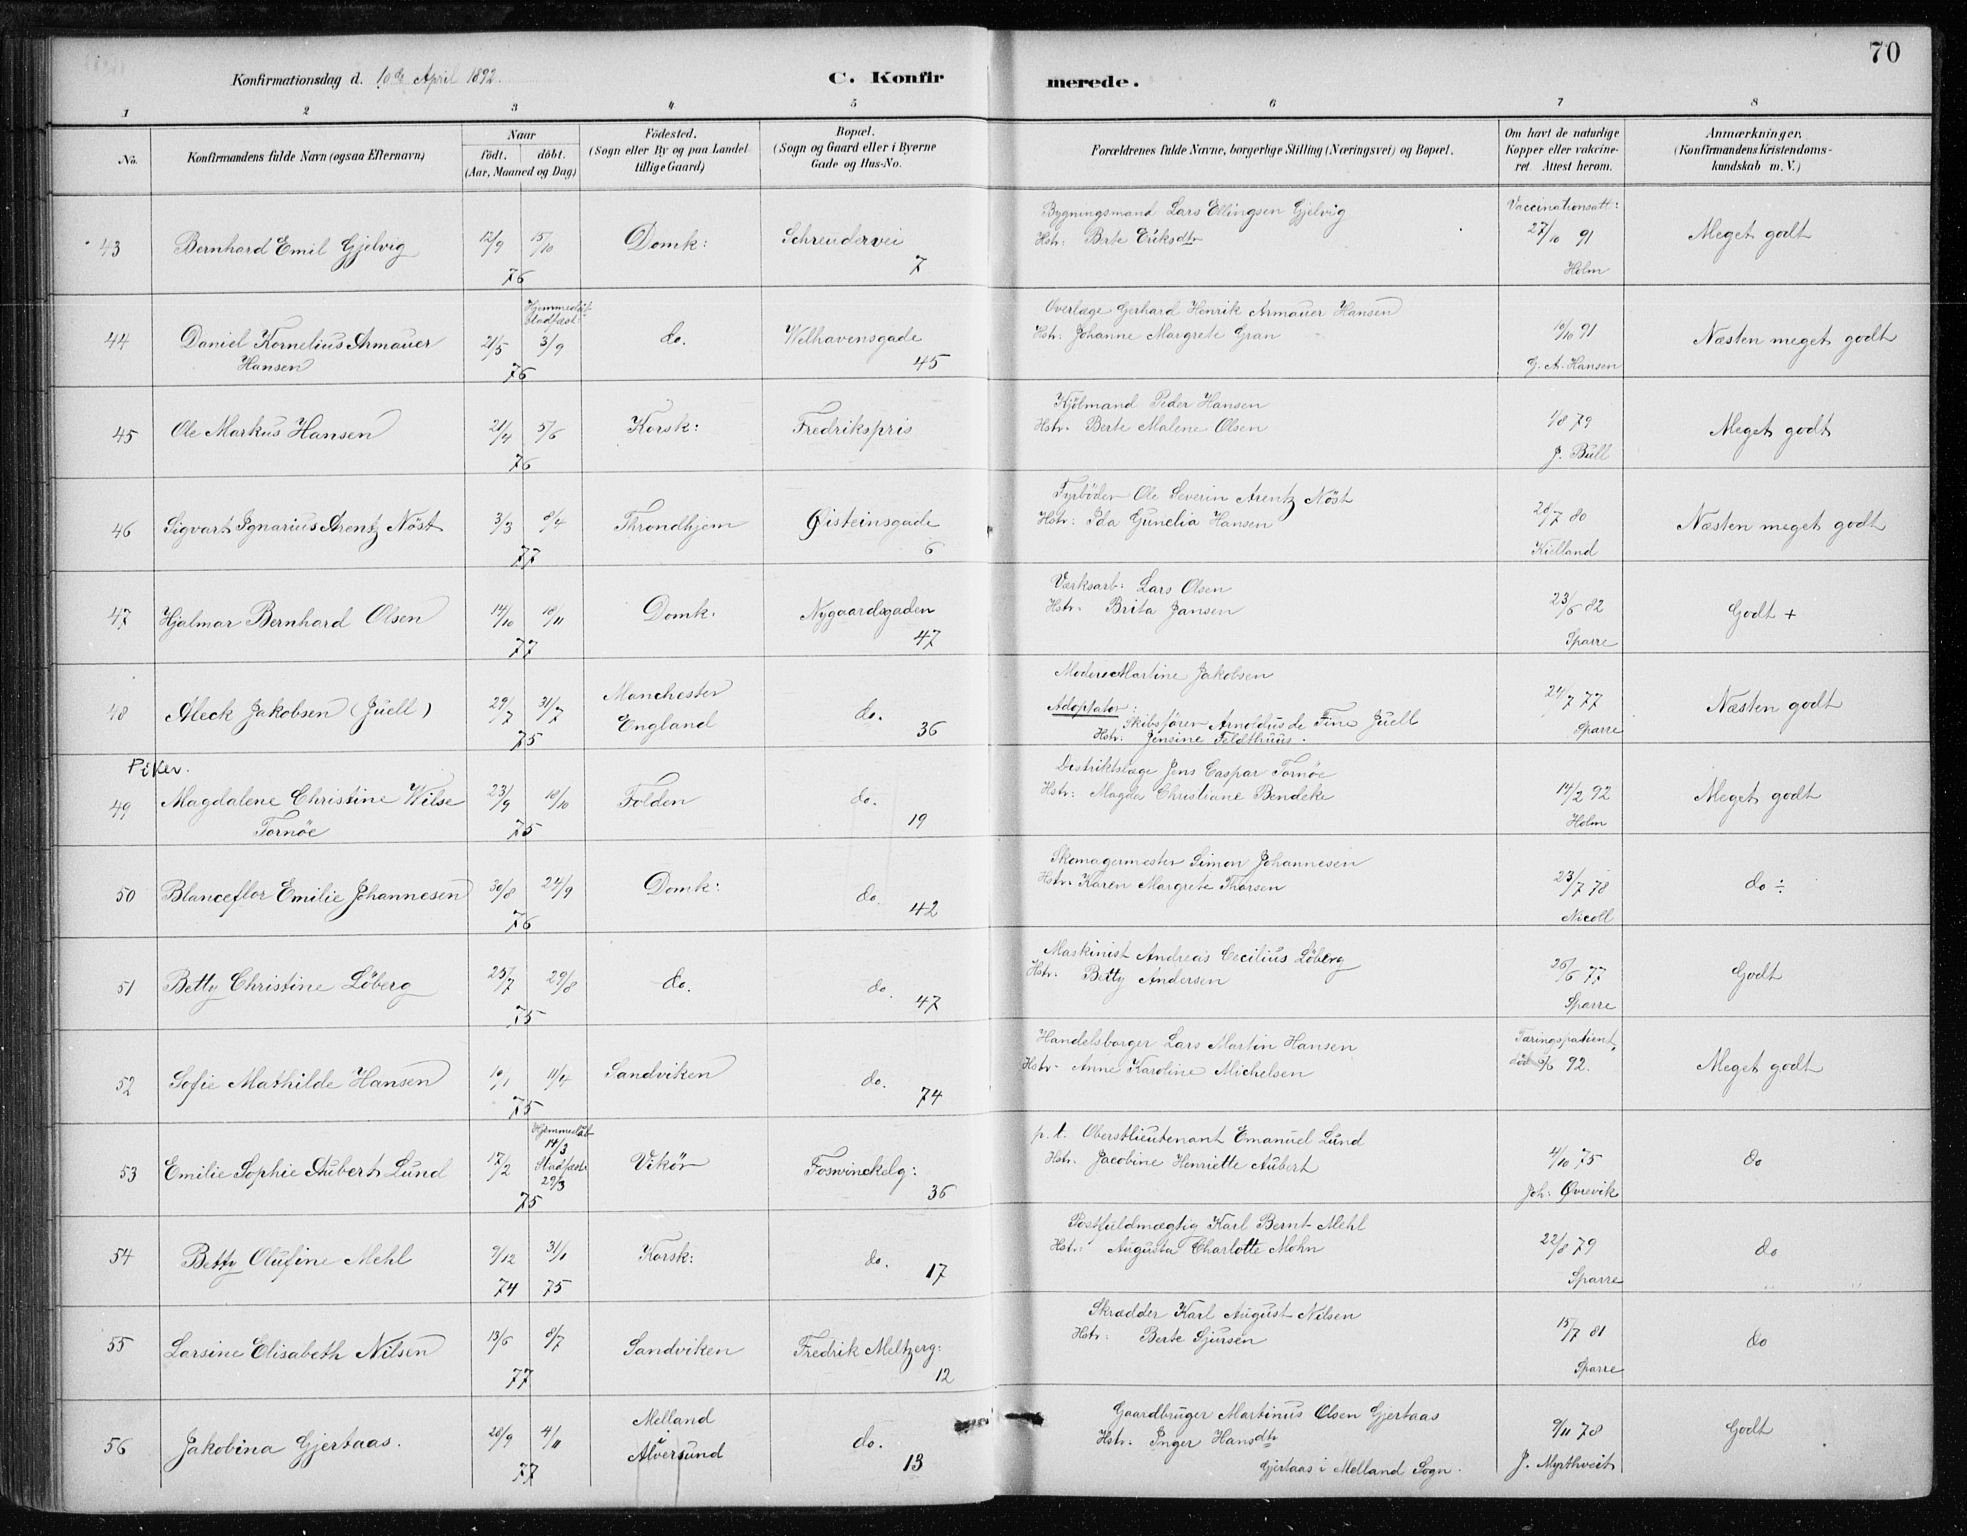 70
Konfirmationsdag d. 10de April 1892.
C. Konfirmerede.
1 2 3 4 5 6 7 8
No.
Konfirmandens fulde Navn (ogsaa Efternavn)
Naar
födt. döbt.
(Aar, Maaned og Dag)
Födested.
(Sogn eller By og paa Landet
tillige Gaard)
Bopæl.
(Sogn og Gaard eller i Byerne
Gade og Hus-No.
Forældrenes fulde Navne, borgerlige Stilling (Næringsvei) og Bopæl.
Om havt de naturlige
Kopper eller vakcine-
ret. Attest herom.
Anmærkninger.
(Konfirmandens Kristendoms-
kundskab m. V.)
43 Bernhard Emil Gjelvig 12/9 15/10 76 Domk: Schreudervei 7
Bygningsmand Lars Ellingsen Gjelvig
Hstr: Berte Eriksdtr
Vaccinationsatt:
27/10 91
Holm
Meget godt
44 Daniel Kornelius Armauer
Hansen
21/5 Hjemmedöbt
stadfæst: 3/9 76 do. Welhavensgade 45
Overlæge Gerhard Henrik Armauer Hansen
Hstr: Johanne Margrete Gran
10/10 91
G. A. Hansen
Næsten meget godt
45 Ole Markus Hansen 21/4 5/6 76 Korsk: Fredrikspris
Kjölmand Peder Hansen
Hstr. Berte Malene Olsen
1/8 79
J. Bull
Meget godt
46 Sigvart Ignarius Arentz Nöst 3/3 8/4 77 Throndhjem Øisteinsgade 6
Fyrböder Ole Severin Arentz Nöst
Hstr: Ida Gunelia Hansen
28/7 80
Kielland
Næsten meget godt
47 Hjalmar Bernhard Olsen 14/10 18/11 77 Domk: Nygaardsgaden 47
Værksarb: Lars Olsen
Hstr: Brita Jansen
23/6 82
Sparre
Godt +
48 Aleck Jakobsen (Juell) 29/7 31/7 75 Manchester
England
do. 36
Moder: Martine Jakobsen
Adoptator:
Skibsförer Arnoldus de Fine Juell
Hstr: Jensine Feldthuus.
24/7 77
Sparre
Næsten godt
Piker.
49 Magdalene Christine Wilse
Tornöe
23/9 10/10 75 Folden do. 19
Destriktslæge Jens Caspar Tornöe
Hstr: Magda Christiane Bendeke
14/2 92
Holm
Meget godt
50 Blanceflor Emilie Johannesen 30/8 24/9 76 Domk: do. 42
Skomagermester Simon Johannesen
Hstr. Karen Margrete Thorsen
23/7 78
Nicoll
do ÷
51 Betty Christine Löberg 25/7 29/8 75 do. do. 47
Maskinist Andreas Cecilius Löberg
Hstr. Betty Andersen
26/6 77
Sparre
Godt
52 Sofie Mathilde Hansen 10/1 11/4 75 Sandviken do. 74
Handelsborger Lars Martin Hansen
Hstr. Anne Karoline Michelsen
Tæringspatient,
92.
Meget godt
53 Emilie Sophie Aubert Lund 17/2 Hjemmedöbt
14/3
Stadfæste
29/3
75 Vikör Fosvinckelg: 36
p. t. Oberstlieutenant Emanuel Lund
Hstr. Jacobine Henriette Aubert
4/10 75
Joh: Øvrevik
do
54 Betty Olufine Mehl 9/12 74 31/1 75 Korsk: do. 17
Postfuldmægtig Karl Bernt Mehl
Hstr: Augusta Charlotte Mohn
22/8 79
Sparre
do
55 Larsine Elisabeth Nilsen 13/6 8/7 77 Sandviken Fredrik Meltzerg: 12
Skrædder Karl August Nilsen
Hstr: Berte Sjursen
15/7 81
Sparre
do
56 Jakobina Gjertaas. 28/9 4/11 77 Melland
i
Alversund
do. 13
Gaardbruger Martinus Olsen Gjertaas
Hstr. Inger Hansdtr
Gjertaas i Melland Sogn.
9/11 78
J. Myrthveit
Godt